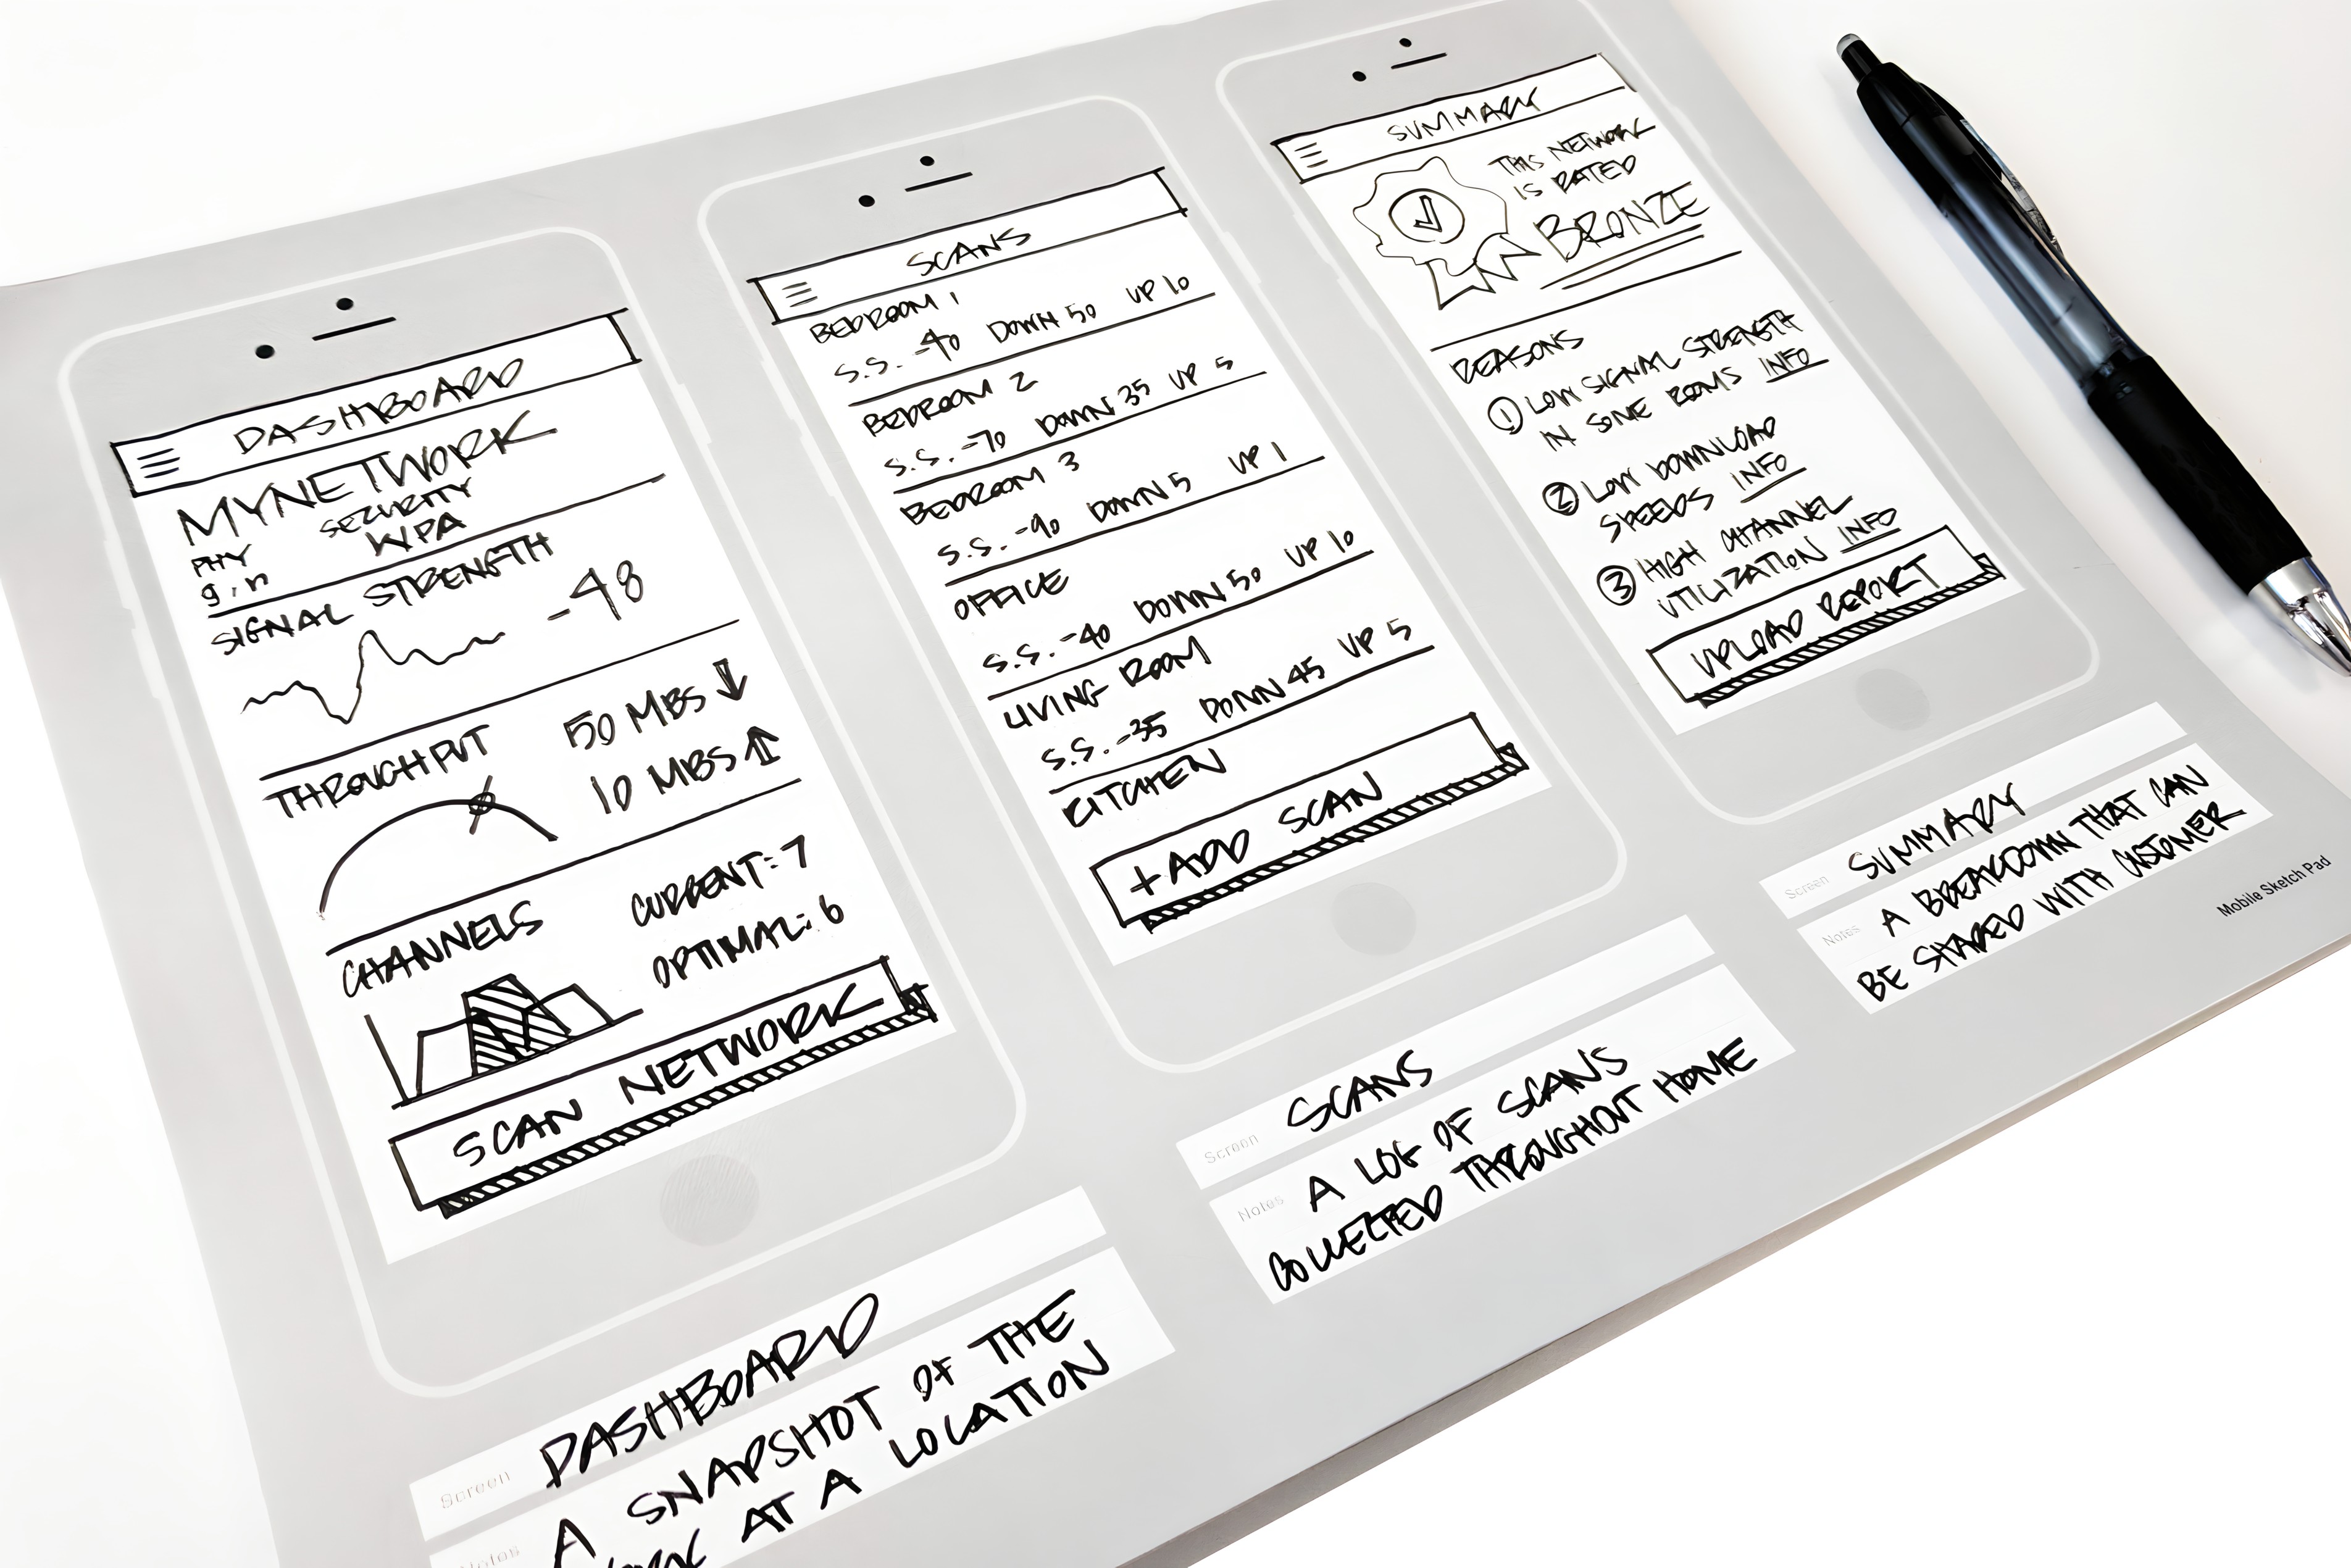 DASHBOARD
MYNETWORK
PHY
g,n
SECURITY
WPA
SIGNAL STRENGTH
-48
THROUGHPUT
50 MBS ↓
10 MBS ↑
CHANNELS
CURRENT: 7
OPTIMAL: 6
SCAN NETWORK
Screen DASHBOARD
Notes A SNAPSHOT OF THE
AT A LOCATION
SCANS
BEDROOM 1
S.S. -40 DOWN 50 UP 10
BEDROOM 2
S.S. -70 DOWN 35 UP 5
BEDROOM 3
S.S. -90 DOWN 5 UP 1
OFFICE
S.S. -40 DOWN 50 UP 10
LIVING ROOM
S.S. -35 DOWN 45 UP 5
KITCHEN
+ADD SCAN
Screen SCANS
Notes A LOG OF SCANS
COLLECTED THROUGHOUT HOME
SUMMARY
THIS NETWORK
IS RATED
BRONZE
REASONS
1 LOW SIGNAL STRENGTH
IN SOME ROOMS INFO
2 LOW DOWNLOAD
SPEEDS INFO
3 HIGH CHANNEL
UTILIZATION INFO
UPLOAD REPORT
Screen SUMMARY
Notes A BREAKDOWN THAT CAN
BE SHARED WITH CUSTOMER
Mobile Sketch Pad